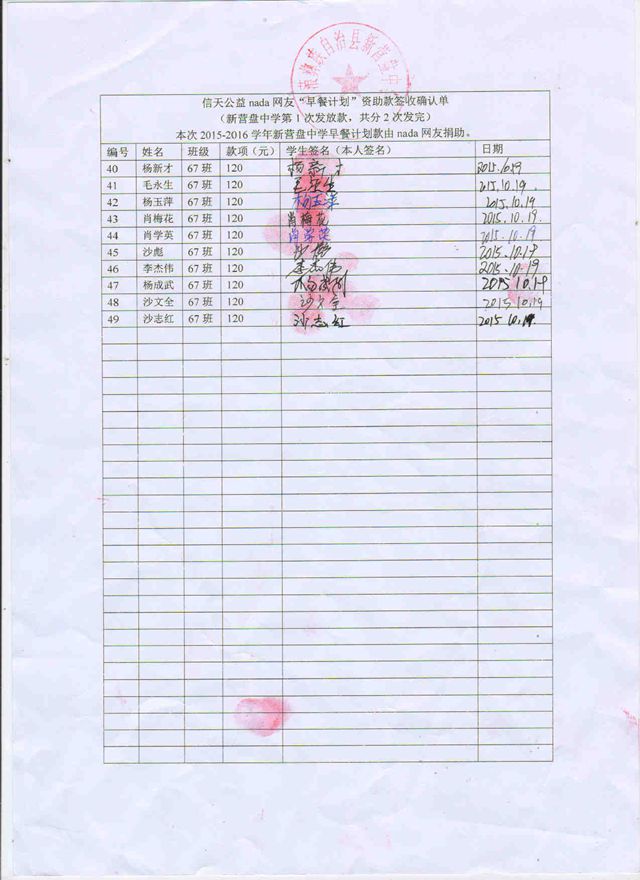 族自治县新营盘中
信天公益 nada 网友“早餐计划”资助款签收确认单
（新营盘中学第 1 次发放款，共分 2 次发完）
本次 2015-2016 学年新营盘中学早餐计划款由 nada 网友捐助。
编号 姓名 班级 款项（元） 学生签名（本人签名） 日期
40 杨新才 67 班 120 杨新才 2015.10.19
41 毛永生 67 班 120 毛永生 2015.10.19.
42 杨玉萍 67 班 120 杨玉萍 2015.10.19
43 肖梅花 67 班 120 肖梅花 2015.10.19.
44 肖学英 67 班 120 肖学英 2015.10.19
45 沙彪 67 班 120 沙彪 2015.10.19
46 李杰伟 67 班 120 李杰伟 2015.10.19
47 杨成武 67 班 120 2015 10.19
48 沙文全 67 班 120 沙文全 2015 10.19
49 沙志红 67 班 120 沙志红 2015 10.19.